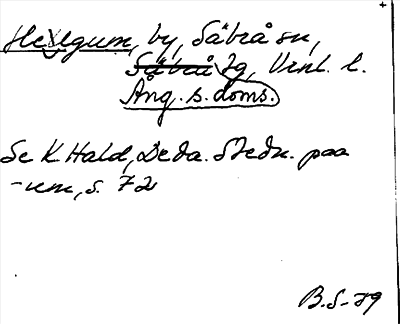 Helgum, by, Säbrå sn,
Säbrå tg, Vnl. l.
Ång. s. doms.
Se K Hald, De da. Stedn. paa
-um, s. 72
B.S-79